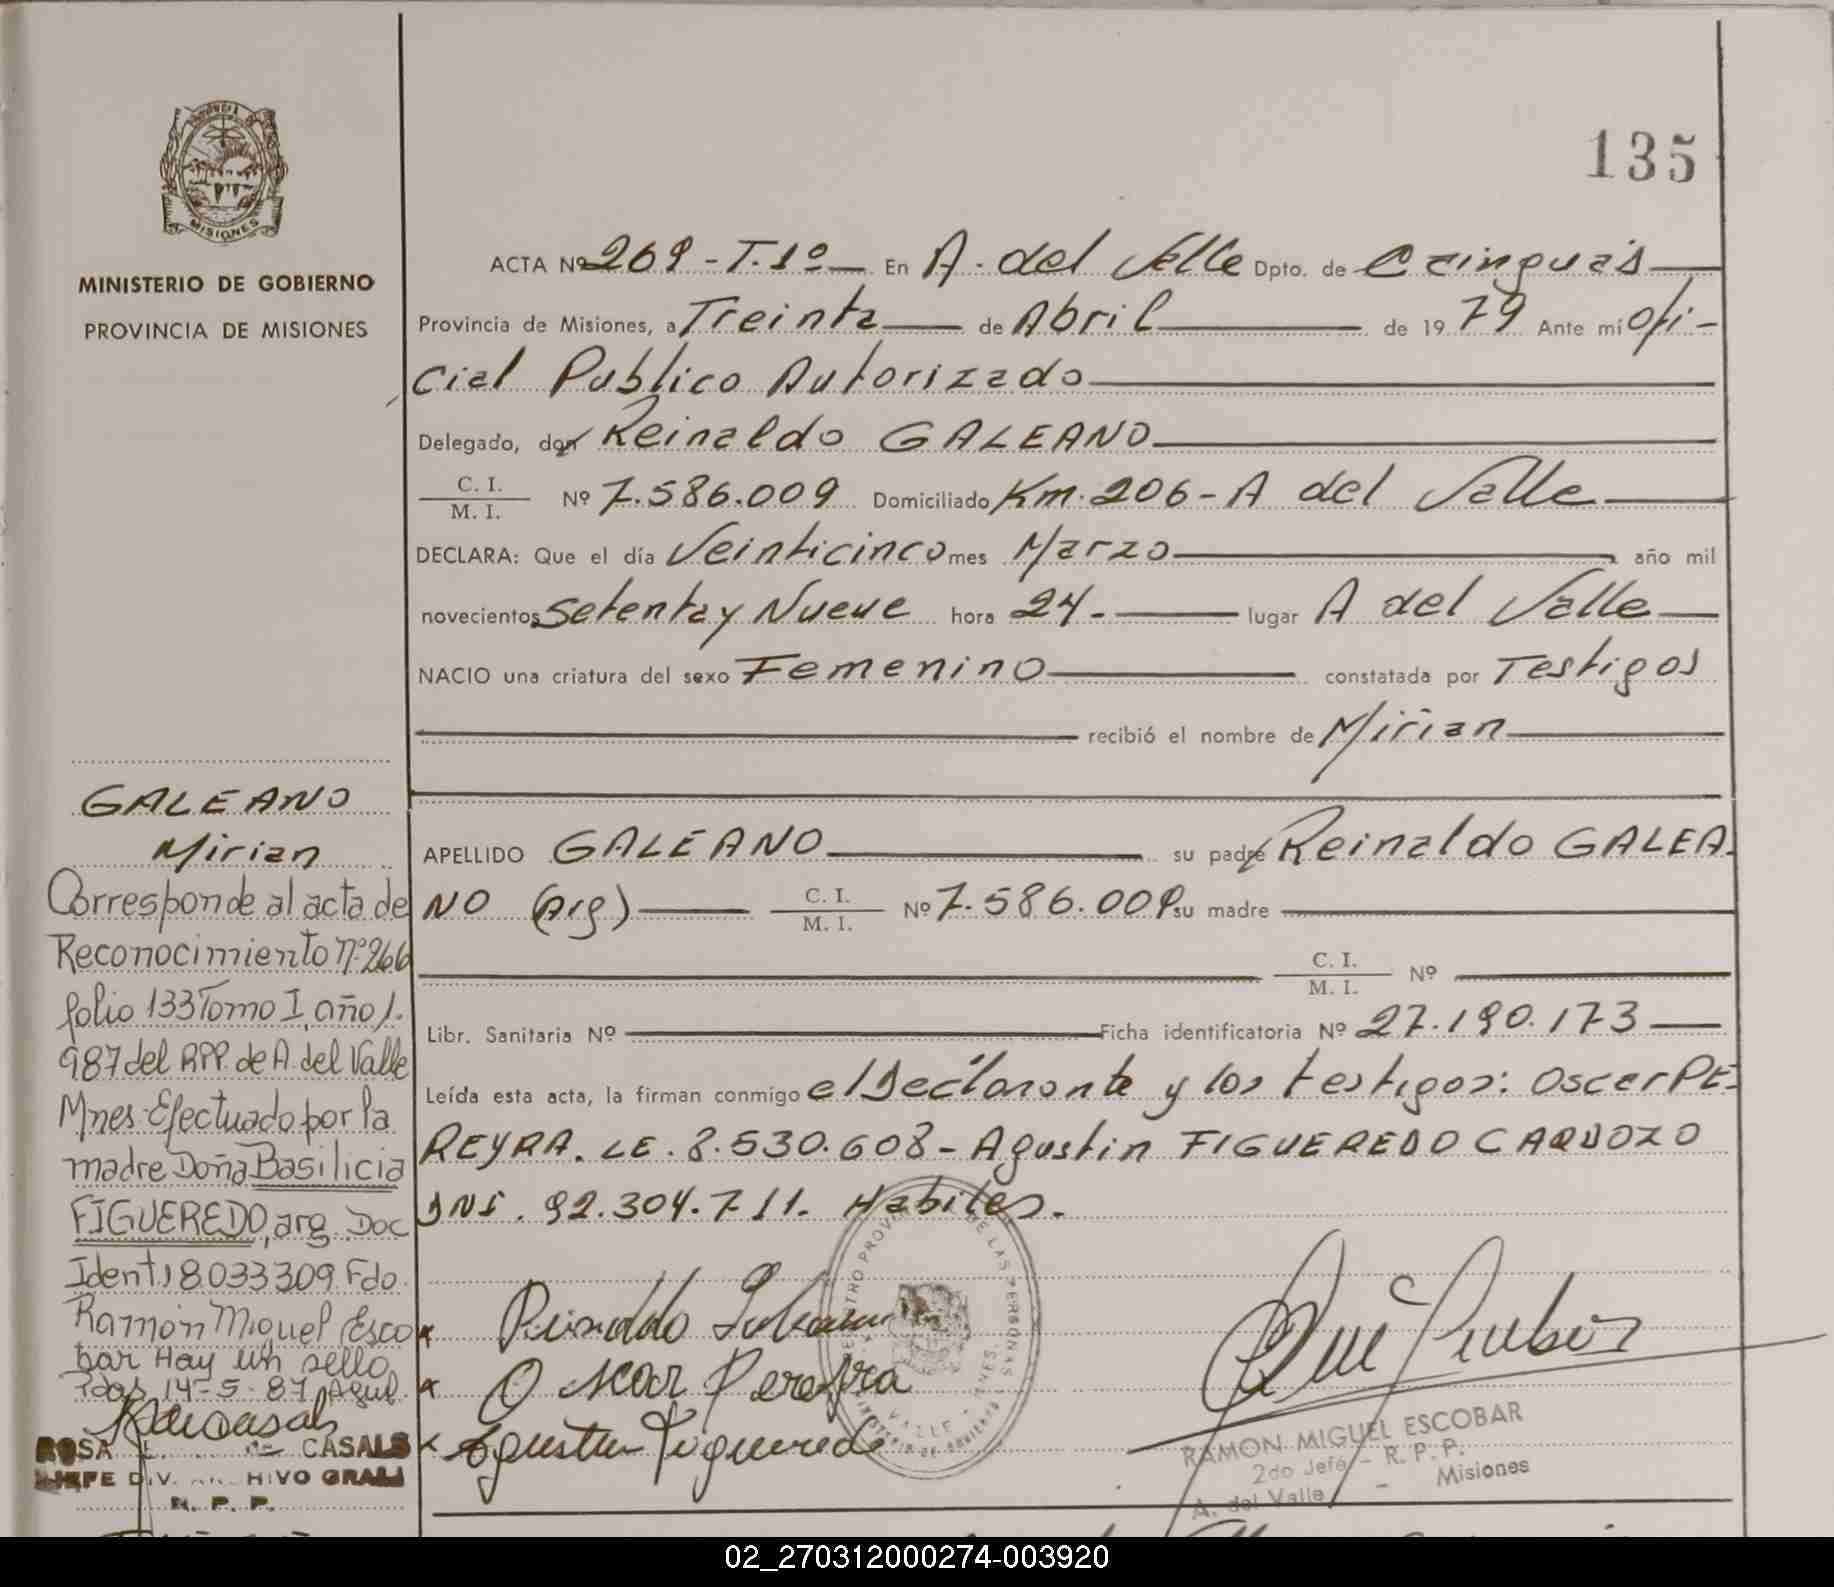 PROVINCIA DE
MISIONES
MINISTERIO DE GOBIERNO
PROVINCIA DE MISIONES
135
ACTA Nº 269 - T. 1º En A. del Valle Dpto. de Cainguás
Provincia de Misiones, a Treinta de Abril de 1979 Ante mí Ofi-
cial Publico Autorizado
Delegado, don Reinaldo GALEANO
C. I.
M. I. Nº 7.586.009 Domiciliado Km. 206 - A del Valle
DECLARA: Que el día Veinticinco mes Marzo año mil
novecientos Setenta y Nueve hora 24.- lugar A del Valle
NACIO una criatura del sexo Femenino constatada por Testigos
recibió el nombre de Mirian
APELLIDO GALEANO su padre Reinaldo GALEA-
NO (Arg) C. I.
M. I. Nº 7.586.009 su madre
C. I.
M. I. Nº
Libr. Sanitaria Nº Ficha identificatoria Nº 27.190.173
Leída esta acta, la firman conmigo el Declarante y los testigos: Oscar PE-
REYRA. LE. 8.530.608 - Agustin FIGUEREDO CARDOZO
DNI. 92.304.711. Habiles.
Reinaldo
Oscar Pereyra
Agustin Figueredo
RAMON MIGUEL ESCOBAR
2do Jefe - R. P. P.
A. del Valle - Misiones
GALEANO
Mirian
Corresponde al acta de
Reconocimiento Nº 266
folio 133 Tomo I, año 1.
987 del RPP. de A. del Valle
Mnes. Efectuado por la
madre Doña Basilicia
FIGUEREDO, arg. Doc
Ident. 18.033.309 Fdo.
Ramón Miguel Esco
bar Hay un sello
Pdas 14-5-87
ROSA CASALS
JEFE DIV. HIVO GRAL
R. P. P.
02_270312000274-003920